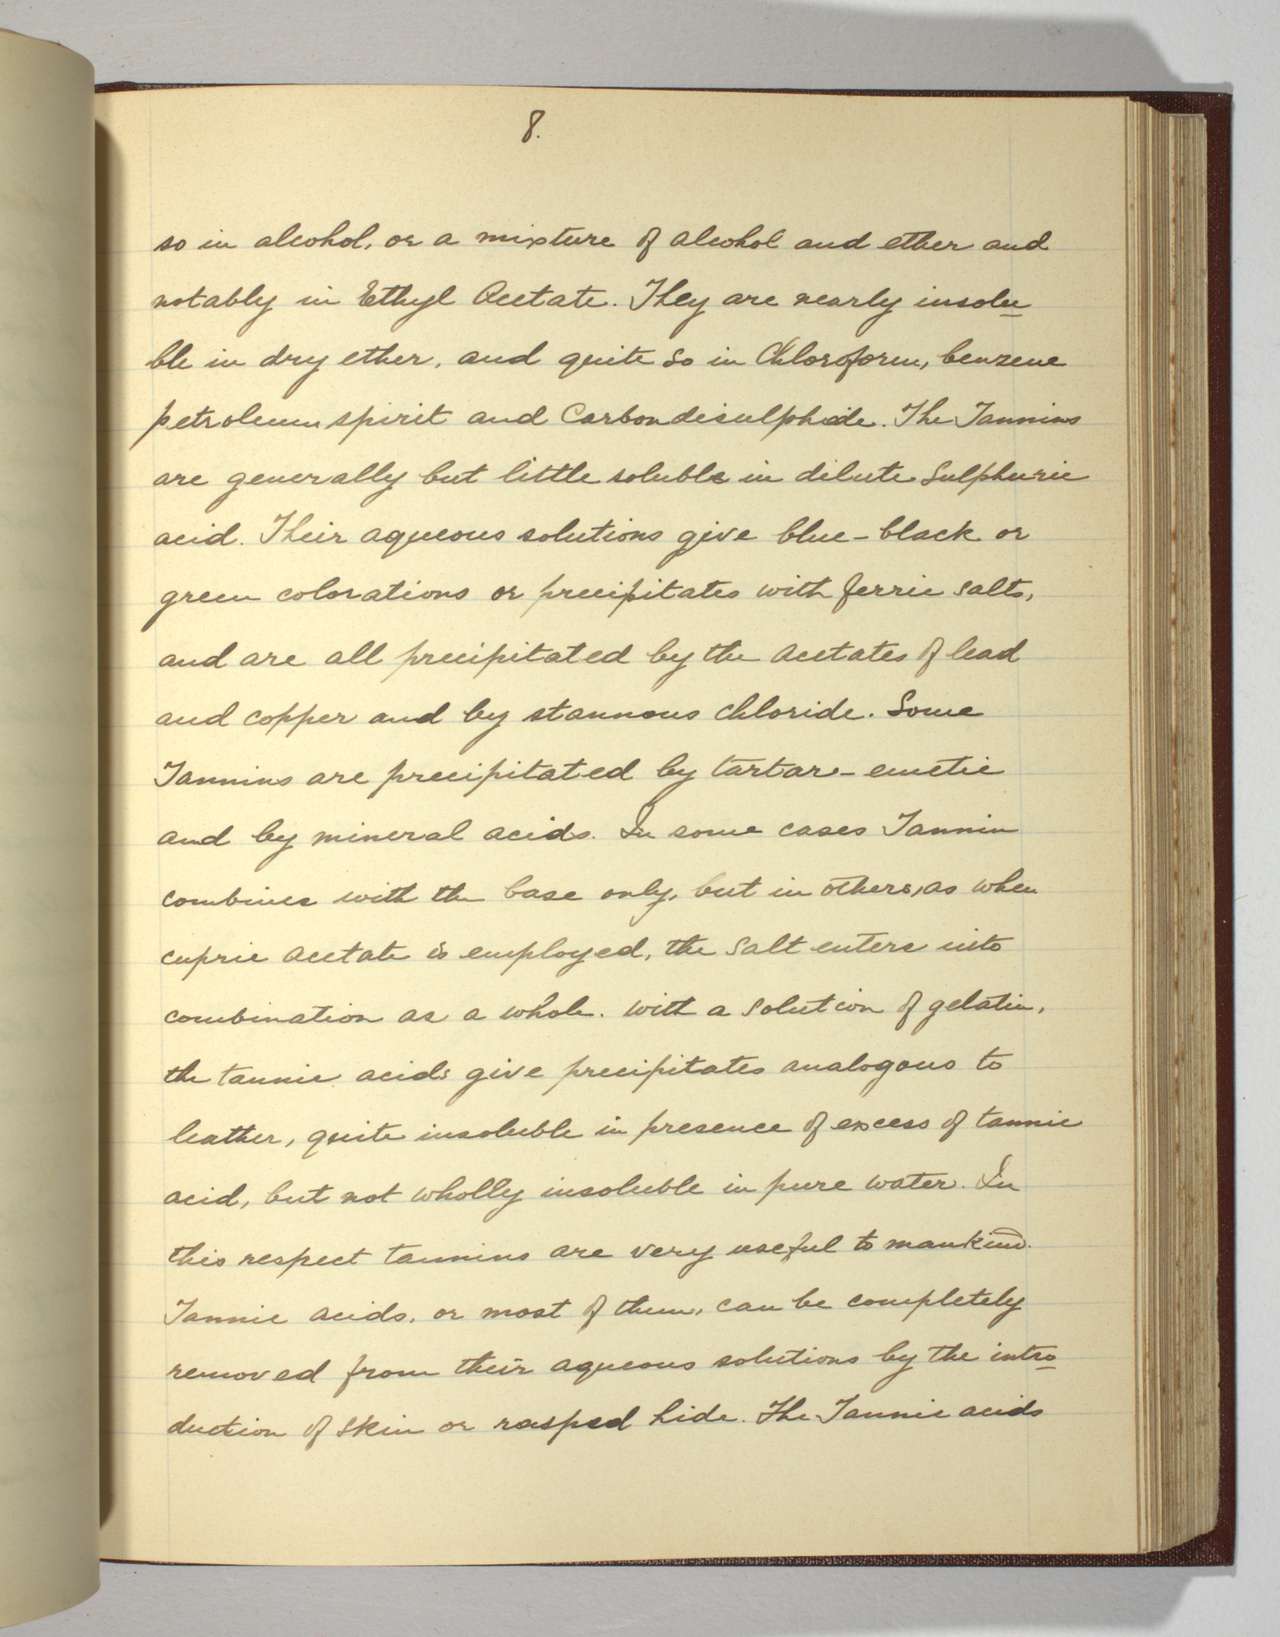 8.
so in alcohol, or a mixture of alcohol and ether and
notably in Ethyl Acetate. They are nearly insolu
ble in dry ether, and quite so in Chloroform, benzene
petroleum spirit and Carbondisulphide. The Tannins
are generally but little soluble in dilute Sulphuric
acid. Their aqueous solutions give blue-black or
green colorations or precipitates with ferric salts,
and are all precipitated by the acetates of lead
and copper and by stannous chloride. Some
Tannins are precipitated by tartar-emetic
and by mineral acids. In some cases Tannin
combines with the base only, but in others, as when
cupric acetate is employed, the salt enters into
combination as a whole. With a solution of gelatin,
the tannic acids give precipitates analogous to
leather, quite insoluble in presence of excess of tannic
acid, but not wholly insoluble in pure water. In
this respect tannins are very useful to mankind.
Tannic acids, or most of them, can be completely
removed from their aqueous solutions by the intro
duction of skin or rasped hide. The Tannic acids